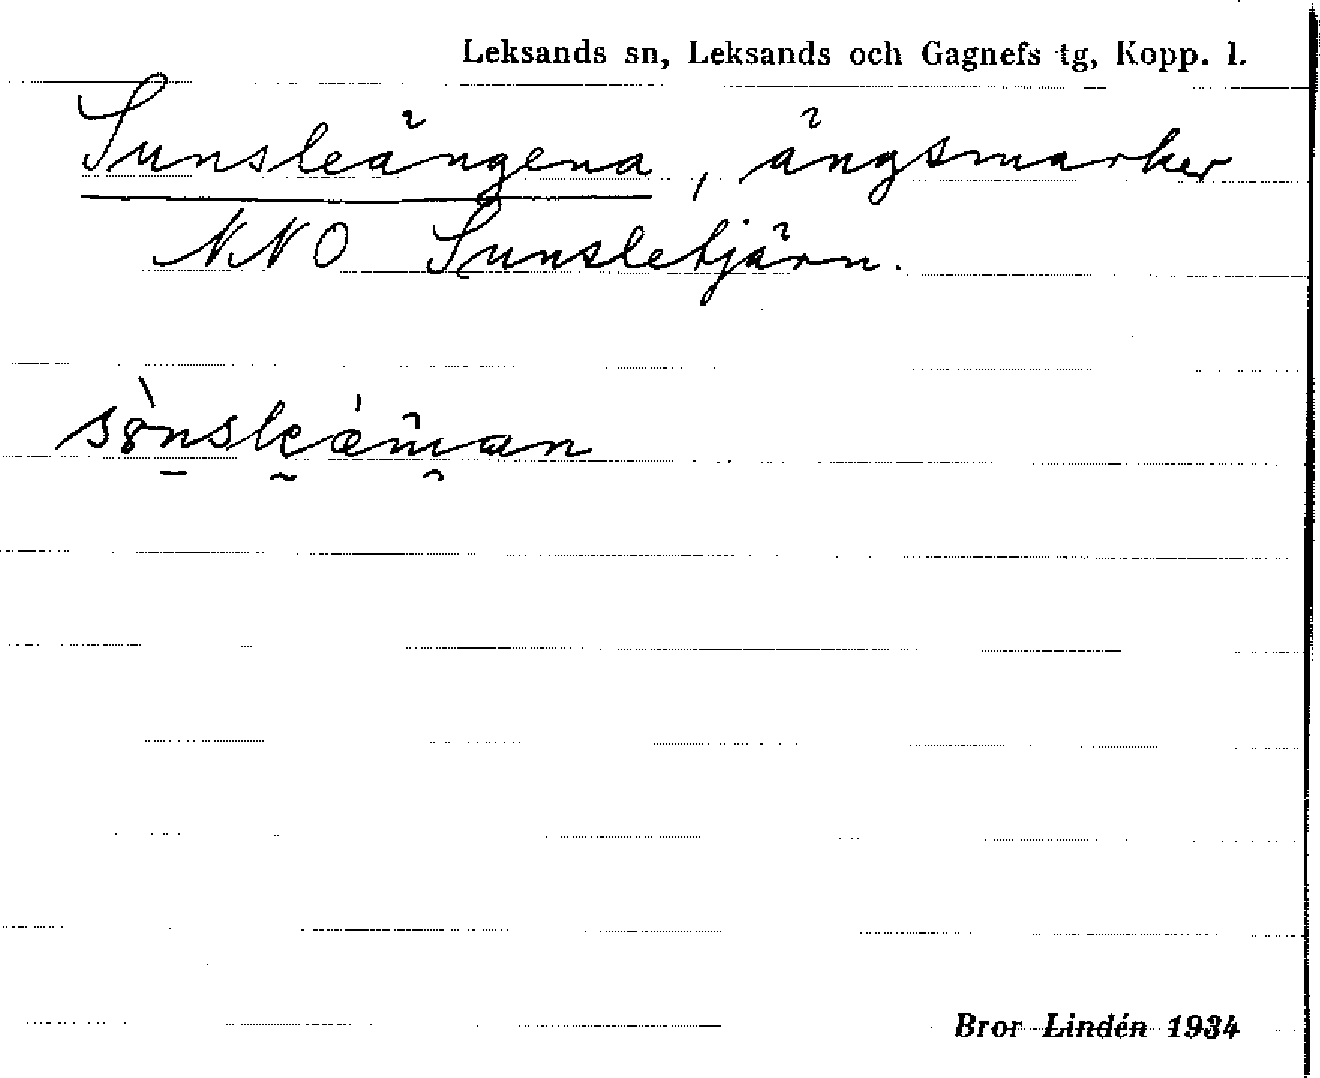 Leksands sn, Leksands och Gagnefs tg, Kopp. l.
Sunsleängena, ängsmarker
NNO Sunsletjärn.
Bror Lindén 1934